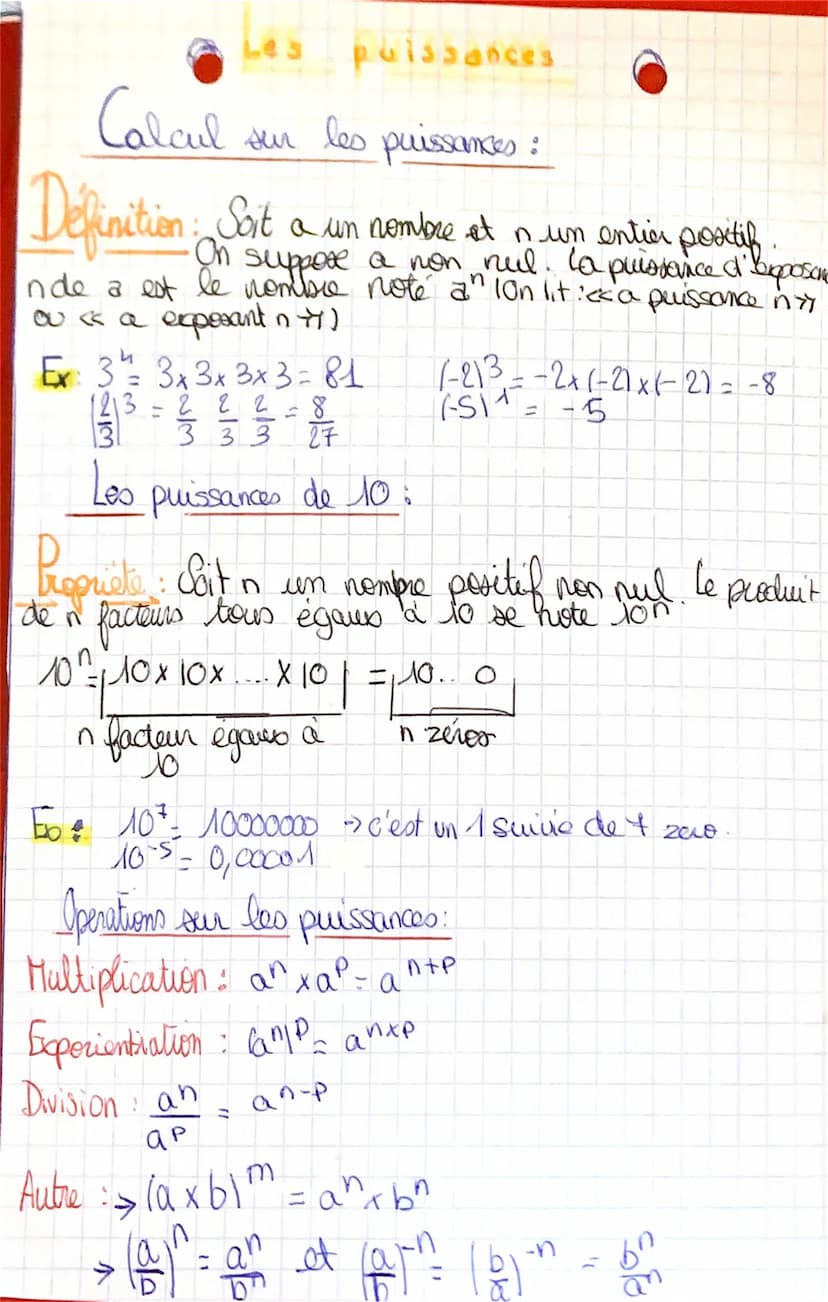 Les puissances
Calcul sur les puissances :
Définition : Soit a un nombre et n un entier positif.
On suppose a non nul. La puissance d'exposan
n de a est le nombre noté aⁿ (On lit : << a puissance n >>
ou << a exposant n >>)
Ex : 3⁴ = 3 x 3 x 3 x 3 = 81 (-2)³ = -2 x (-2) x (-2) = -8
(2/3)³ = 2/3 2/3 2/3 = 8/27 (-5)¹ = -5
Les puissances de 10 :
Propriété : Soit n un nombre positif non nul. Le produit
de n facteurs tous égaux à 10 se note 10n
10ⁿ = 10 x 10 x .... x 10 = 10.. 0
n facteur égaux à n zéros
10
Ex : 10⁷ = 10000000 -> c'est un 1 suivie de 7 zero.
10⁻⁵ = 0,00001
Operations sur les puissances :
Multiplication : aⁿ x aᵖ = aⁿ⁺ᵖ
Exporientiation : (aⁿ)ᵖ = aⁿˣᵖ
Division : aⁿ/aᵖ = aⁿ⁻ᵖ
Autre : -> (a x b)ᵐ = aⁿ x bⁿ
-> (a/b)ⁿ = aⁿ/bⁿ et (a/b)⁻ⁿ = (b/a)⁻ⁿ = bⁿ/aⁿ